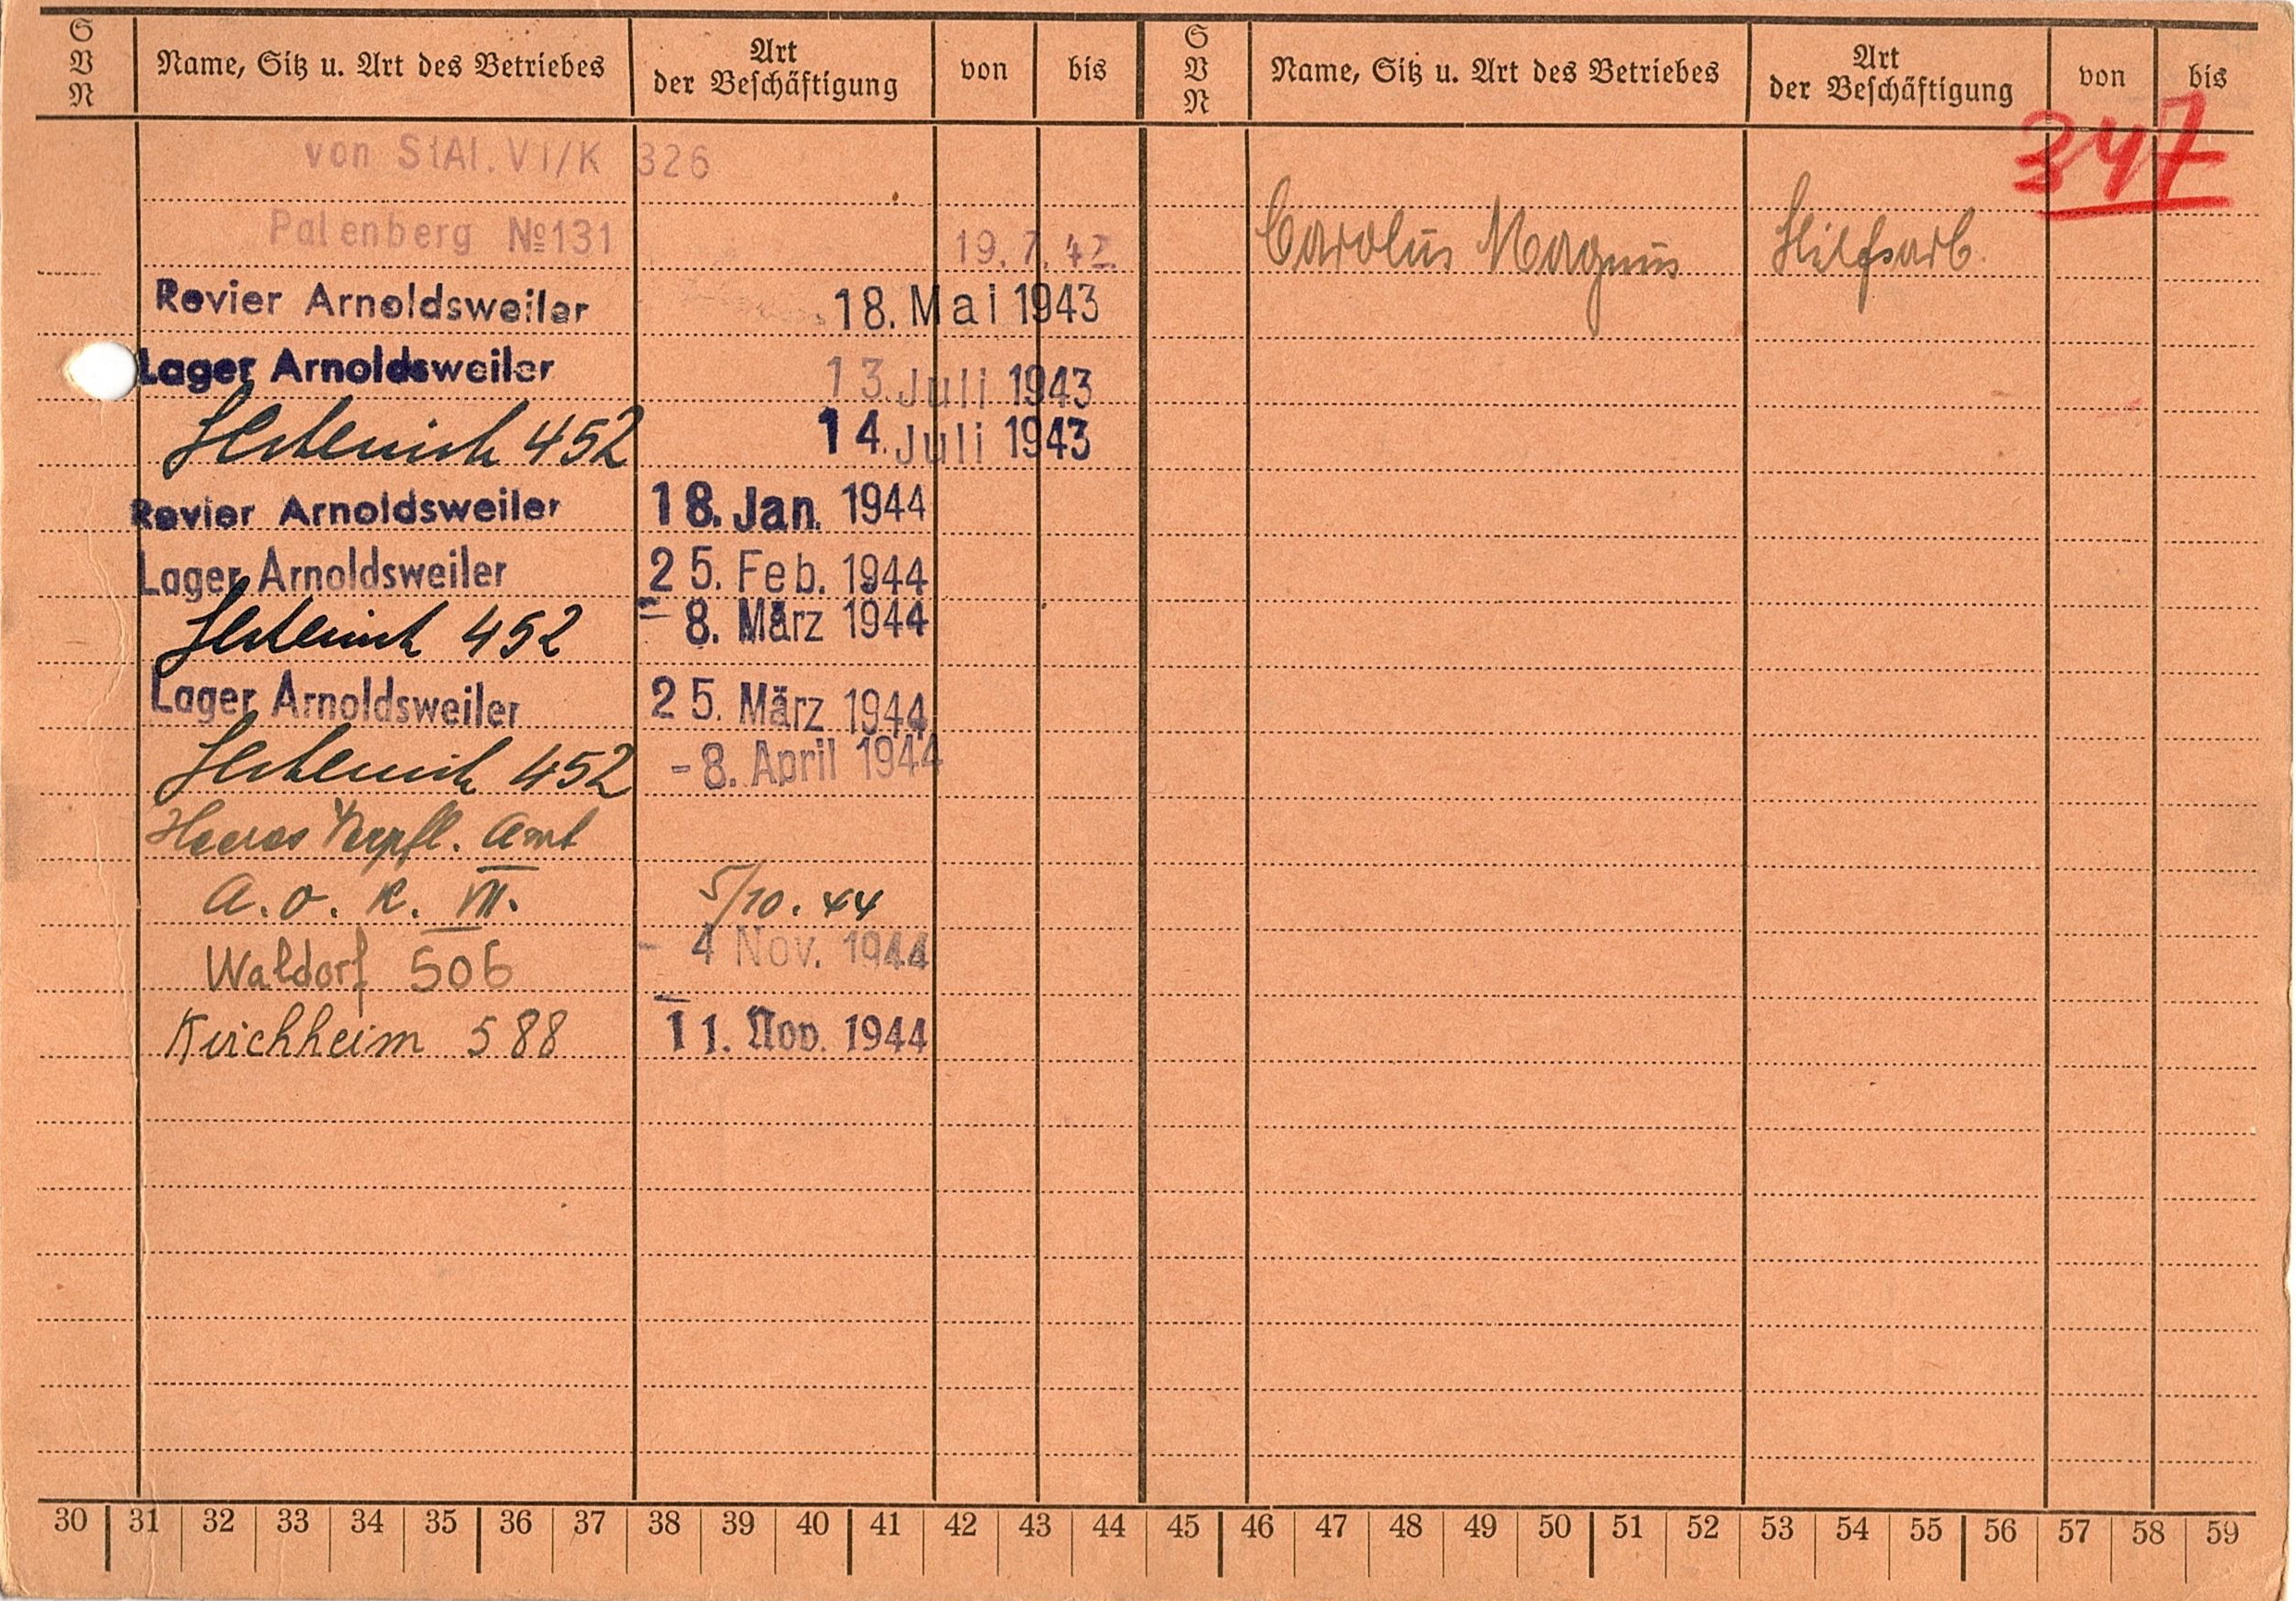 S V N Name, Sitz u. Art des Betriebes Art der Beschäftigung von bis S V N Name, Sitz u. Art des Betriebes Art der Beschäftigung von bis
347
von StAl. VI/K 326
Palenberg №131 19.7.42 Carolus Magnus Hilfsarb.
Revier Arnoldsweiler 18. Mai 1943
Lager Arnoldsweiler 13. Juli 1943
452 14. Juli 1943
Revier Arnoldsweiler 18. Jan. 1944
Lager Arnoldsweiler 25. Feb. 1944
452 - 8. März 1944
Lager Arnoldsweiler 25. März 1944
452 - 8. April 1944
Heeres Verpfl. Amt
A. O. K. VII. 5/10. 44
Waldorf 506 - 4 Nov. 1944
Kirchheim 588 11. Nov. 1944
30 31 32 33 34 35 36 37 38 39 40 41 42 43 44 45 46 47 48 49 50 51 52 53 54 55 56 57 58 59